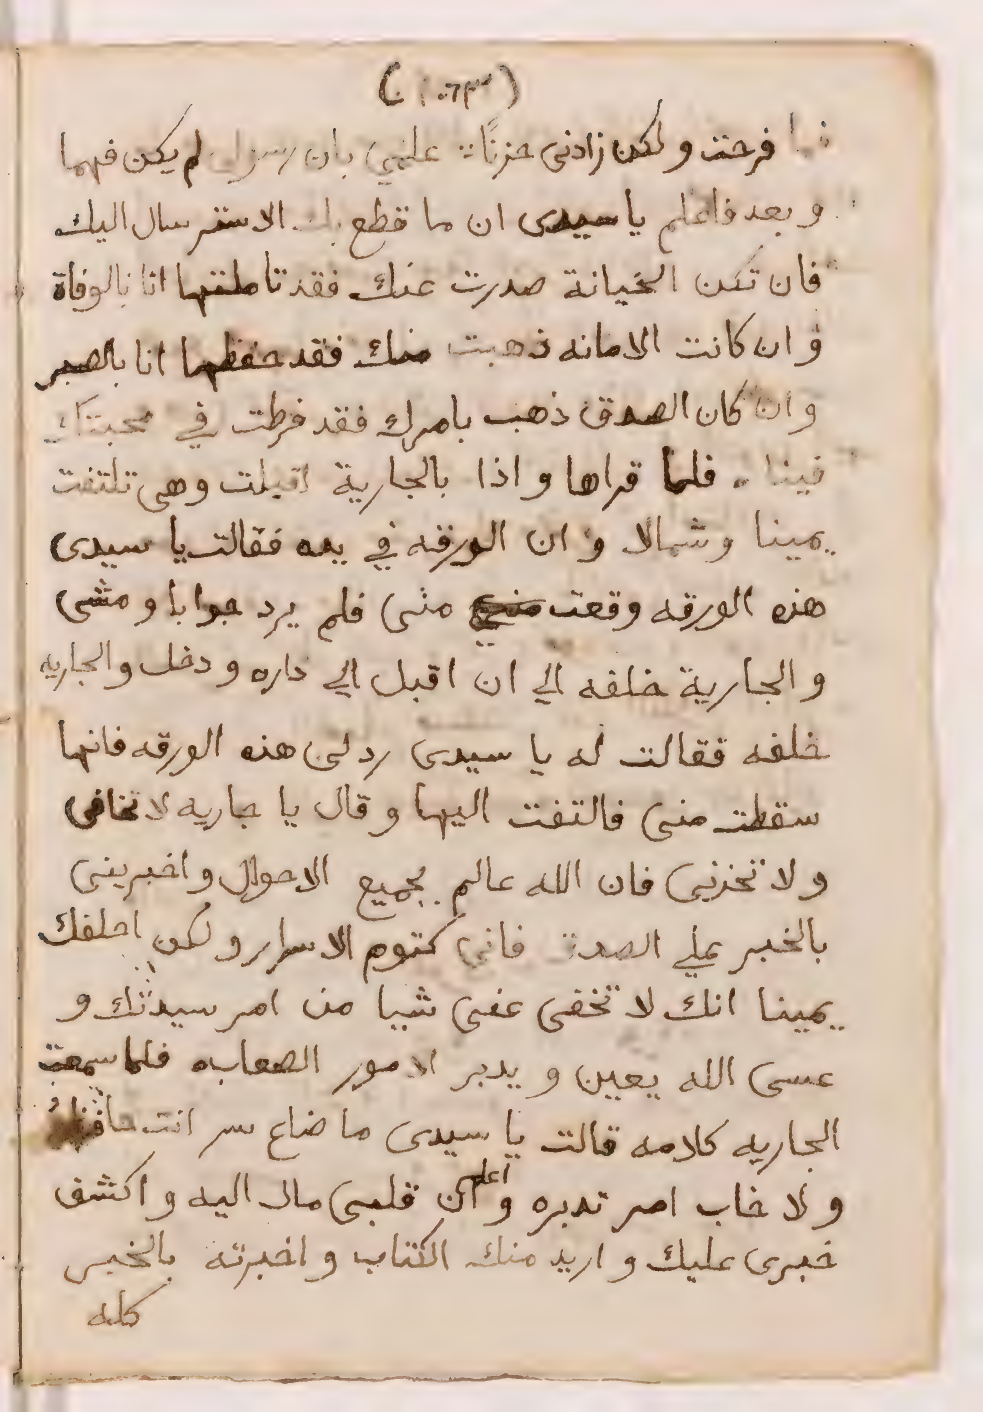 فما فرحت ولكن زادني حزنًا علمي بان رسولي لم يكن فهما
وبعد فاعلم يا سيدى ان ما قطع بك الاسترسال اليك
فان تكن الخيانة صدرت عنك فقد تاملتها انا بالوفاة
وان كانت الامانه ذهبت منك فقد حفظها انا بالصبر
وان كان الصدق ذهب بامرك فقد فرطت في محبتك
فينا فلما قراها واذا بالجارية اقبلت وهى تلتفت
يمينا وشمالا وان الورقه في يده فقالت يا سيدى
هذه الورقه وقعت منى فلم يرد جوابا ومشى
والجارية خلفه الي ان اقبل الي داره ودخل والجاريه
خلفه فقالت له يا سيدى رد لى هذه الورقه فانها
سقطت منى فالتفت اليها وقال يا جاريه لا تخافى
ولا تحزني فان الله عالم بجميع الاحوال واخبرينى
بالخبر علي الصدق فاني كتوم الاسرار ولكن احلفك
يمينا انك لا تخفى عنى شيا من امر سيدتك و
عسى الله يعين ويدبر الامور الصعابه فلما سمعت
الجاريه كلامه قالت يا سيدى ما ضاع سر انت حافظهُ
ولا خاب امر تدبره واعلم ان قلبى مال اليه واكشف
خبرى عليك واريد منك الكتاب واخبرته بالخبر
كله